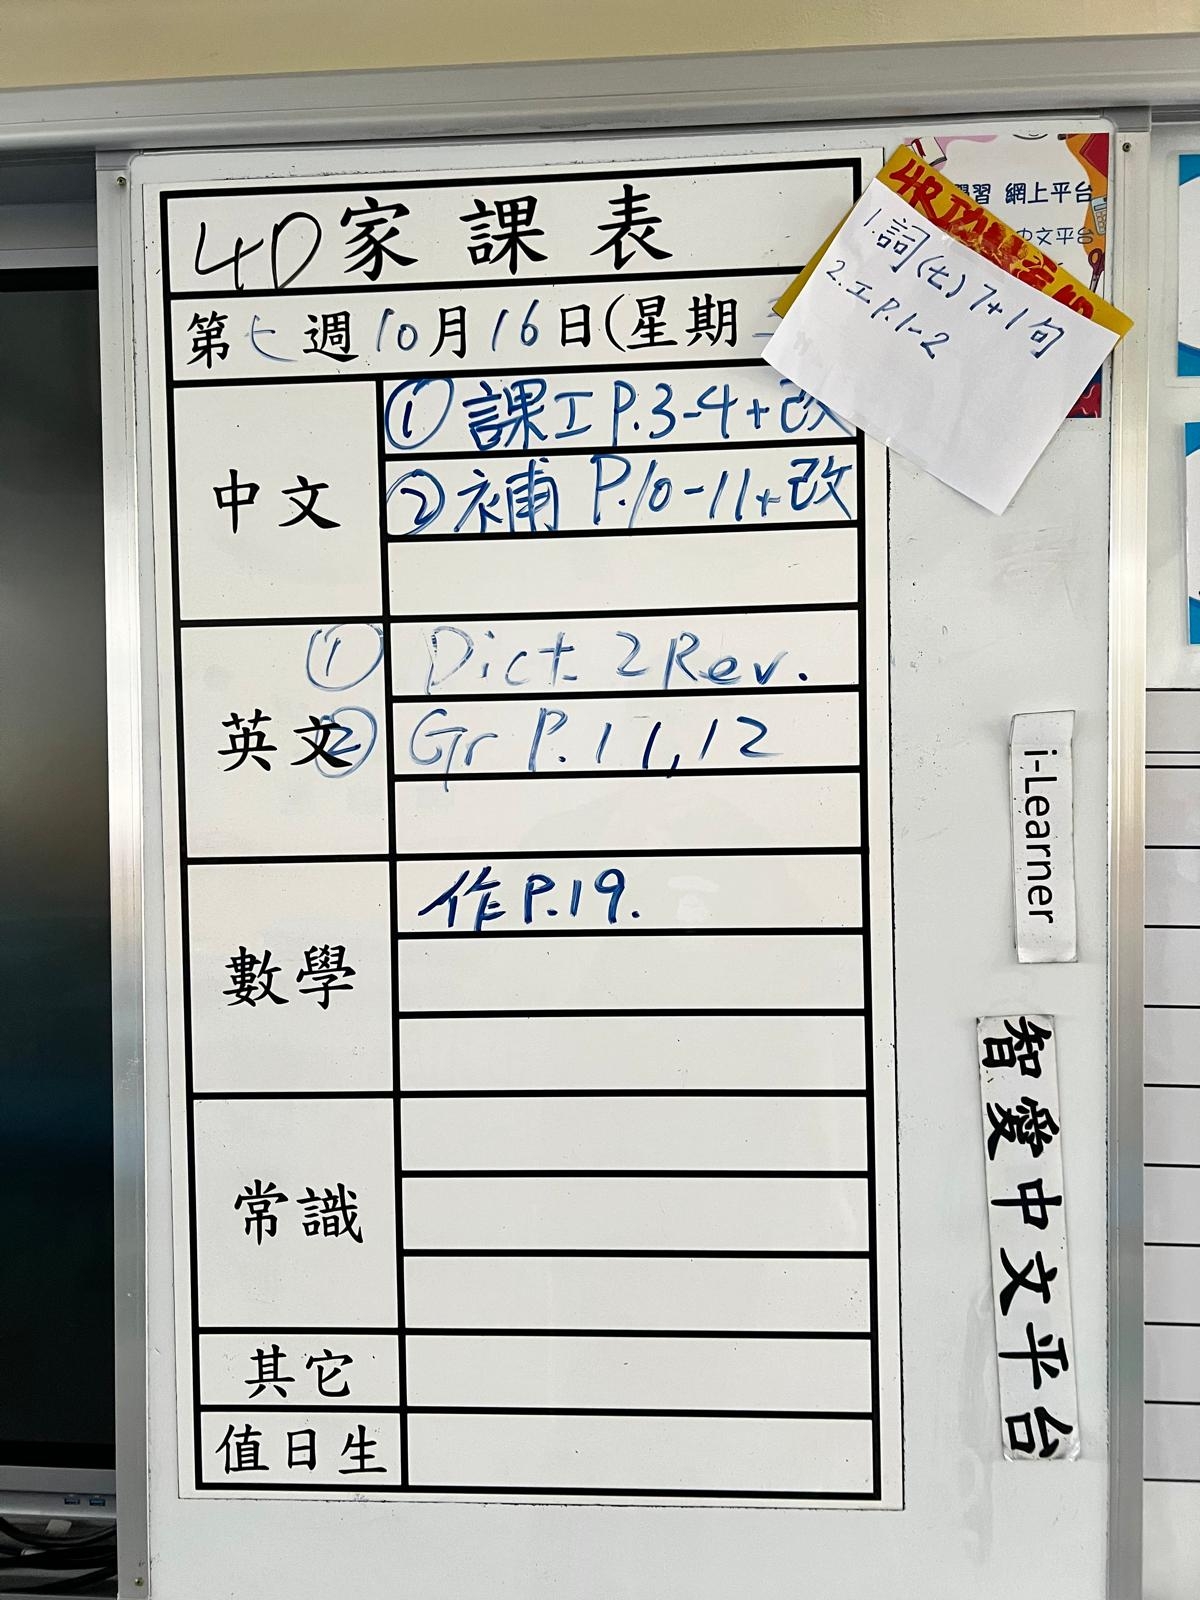 4D家課表
第七週10月16日(星期
中文
① 課工 P.3-4+改
② 補 P.10-11+改
英文
① Dict 2 Rev.
② Gr P.11,12
數學
作P.19.
常識
其它
值日生
學習 網上平台
中文平台
4R
1.詞(七)7+1句
2.工P.1-2
i-Learner
智愛中文平台